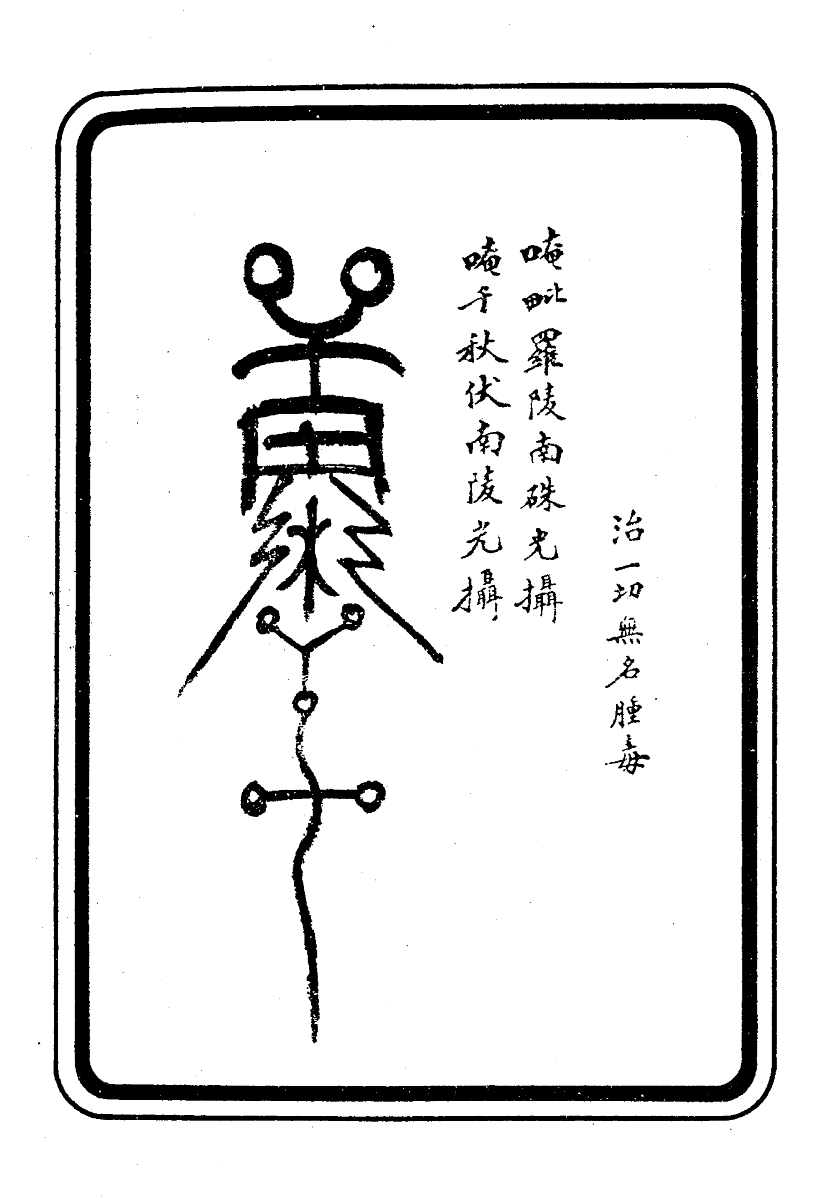 治一切無名腫毒
唵毗羅陵南硃光攝
唵千秋伏南陵光攝